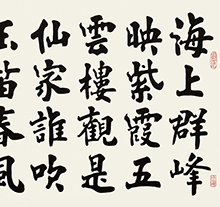 海上群峰
映紫霞五
雲樓觀是
仙家誰吹
玉笛春風